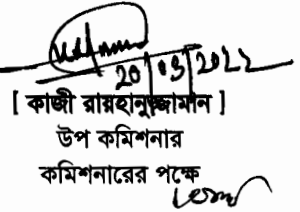 20/03/2022
[ কাজী রায়হানুজ্জামান ]
উপ কমিশনার
কমিশনারের পক্ষে